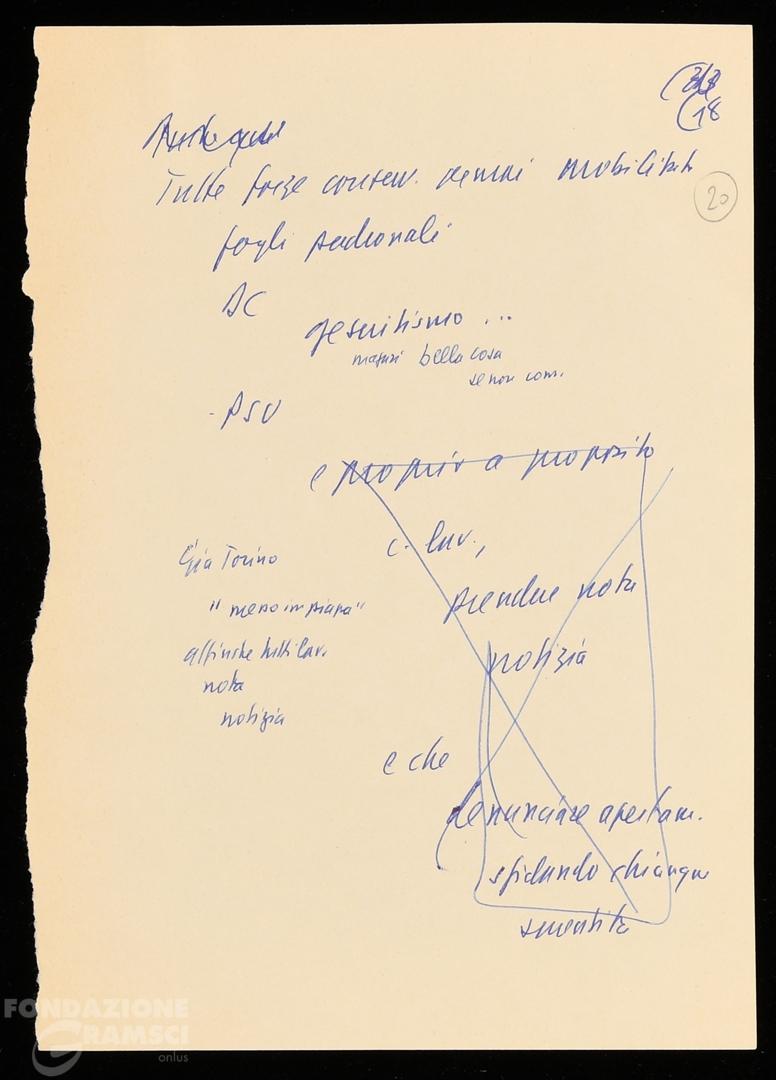 (18
20
Tutte forze conserv. mobilitate
fogli padronali
DC
gesuitismo ...
magari bella cosa
se non com.
- PSU
e proprio a proposito
c. lav.,
Già Torino
prendere nota
"meno in piazza"
affinché tutti lav.
notizia
nota
notizia
e che
denunciare apertam.
sfidando chiunque
smentita
FONDAZIONE
GRAMSCI
onlus